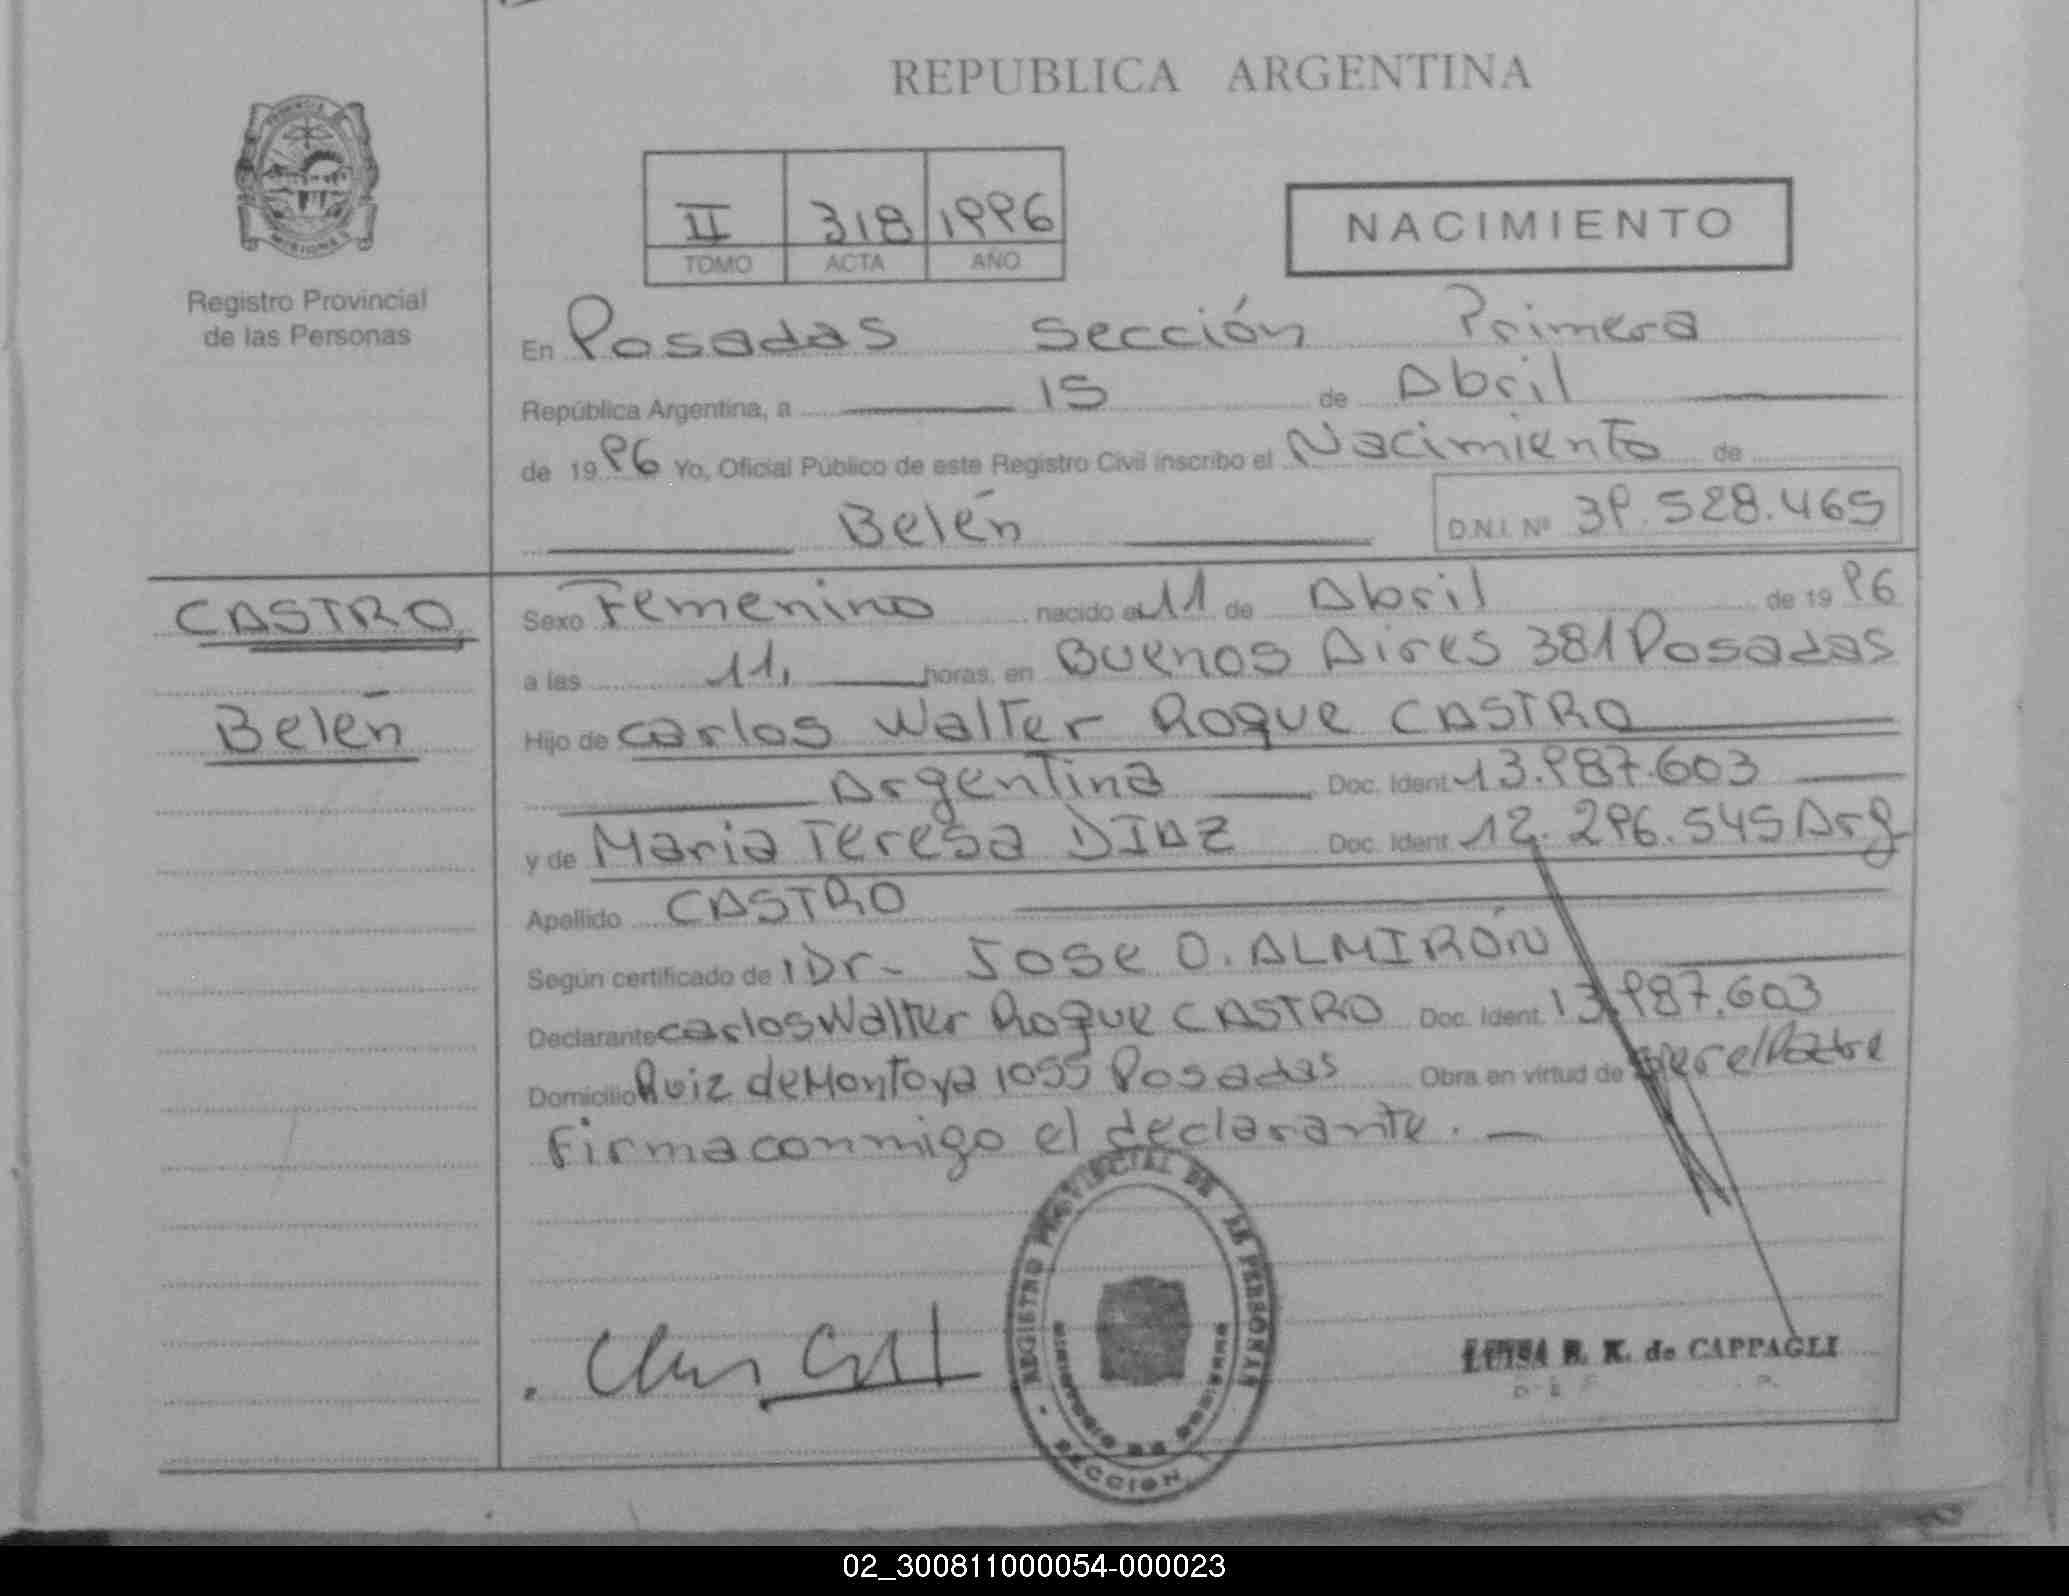 REPUBLICA ARGENTINA
II 318 1996
TOMO ACTA AÑO
NACIMIENTO
Registro Provincial
de las Personas
En Posadas Sección Primera
República Argentina, a 15 de Abril
de 1996 Yo, Oficial Público de este Registro Civil inscribo el Nacimiento de
Belén D.N.I. Nº 39.528.465
CASTRO
Belén
Sexo Femenino nacido el 11 de Abril de 1996
a las 11, horas, en Buenos Aires 381 Posadas
Hijo de Carlos Walter Roque CASTRO
Argentina Doc. Ident. 13.987.603
y de Maria Teresa DIAZ Doc. Ident. 12.296.545 Arg
Apellido CASTRO
Según certificado de Dr- Jose O. ALMIRÓN
Declarante Carlos Walter Roque CASTRO Doc. Ident. 13.987.603
Domicilio Ruiz de Montoya 1055 Posadas Obra en virtud de ser el Padre
Firma conmigo el declarante. —
REGISTRO PROVINCIAL DE PERSONAS
MINISTERIO DE GOBIERNO
SECCION
LUISA R. K. de CAPPAGLI
02_300811000054-000023